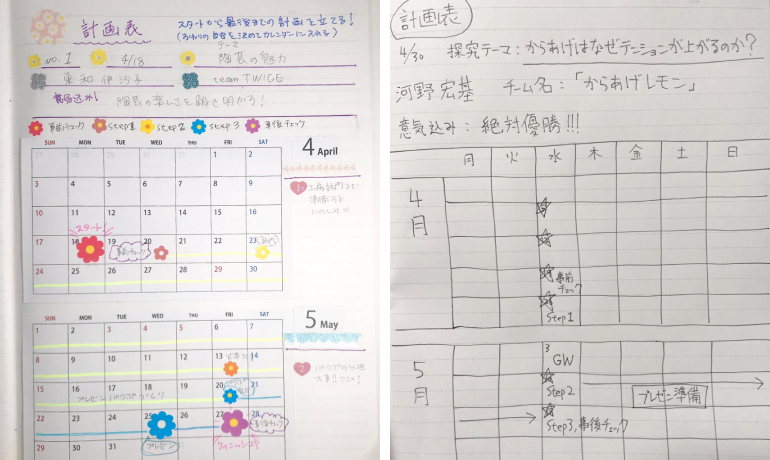 計画表
スタートから最後までの計画を立てる！
(おわりの日を決めてカレンダーに入れる)
NO. 1
4/18
テーマ
陶芸の魅力
東和 伊沙子
team TWICE
意気込み！
陶芸の楽しさを解き明かろ！
事前チェック step1 step2 step3 事後チェック
4 April
SUN MON TUE WED THU FRI SAT
27 28 29 30 31 1 2
3 4 5 6 7 8 9
10 11 12 13 14 15 16
スタート
17 18 19 20 21 22 23
事前チェック
24 25 26 27 28 29 30
1
工房訪問まで
準備する
5 May
SUN MON TUE WED THU FRI SAT
1 2 3 4 5 6 7
8 9 10 11 12 13 14
15 16 17 18 19 20 21
プレゼン パワポづくり
22 23 24 25 26 27 28
プレゼン
事後チェック
29 30 31
2
計画表
4/30 探究テーマ：からあげはなぜテンションが上がるのか？
河野 宏基 チーム名：「からあげレモン」
意気込み：絶対優勝!!!
月 火 水 木 金 土 日
4月
事前チェック
Step1
5月
3
GW
Step2
プレゼン準備
Step3, 事後チェック